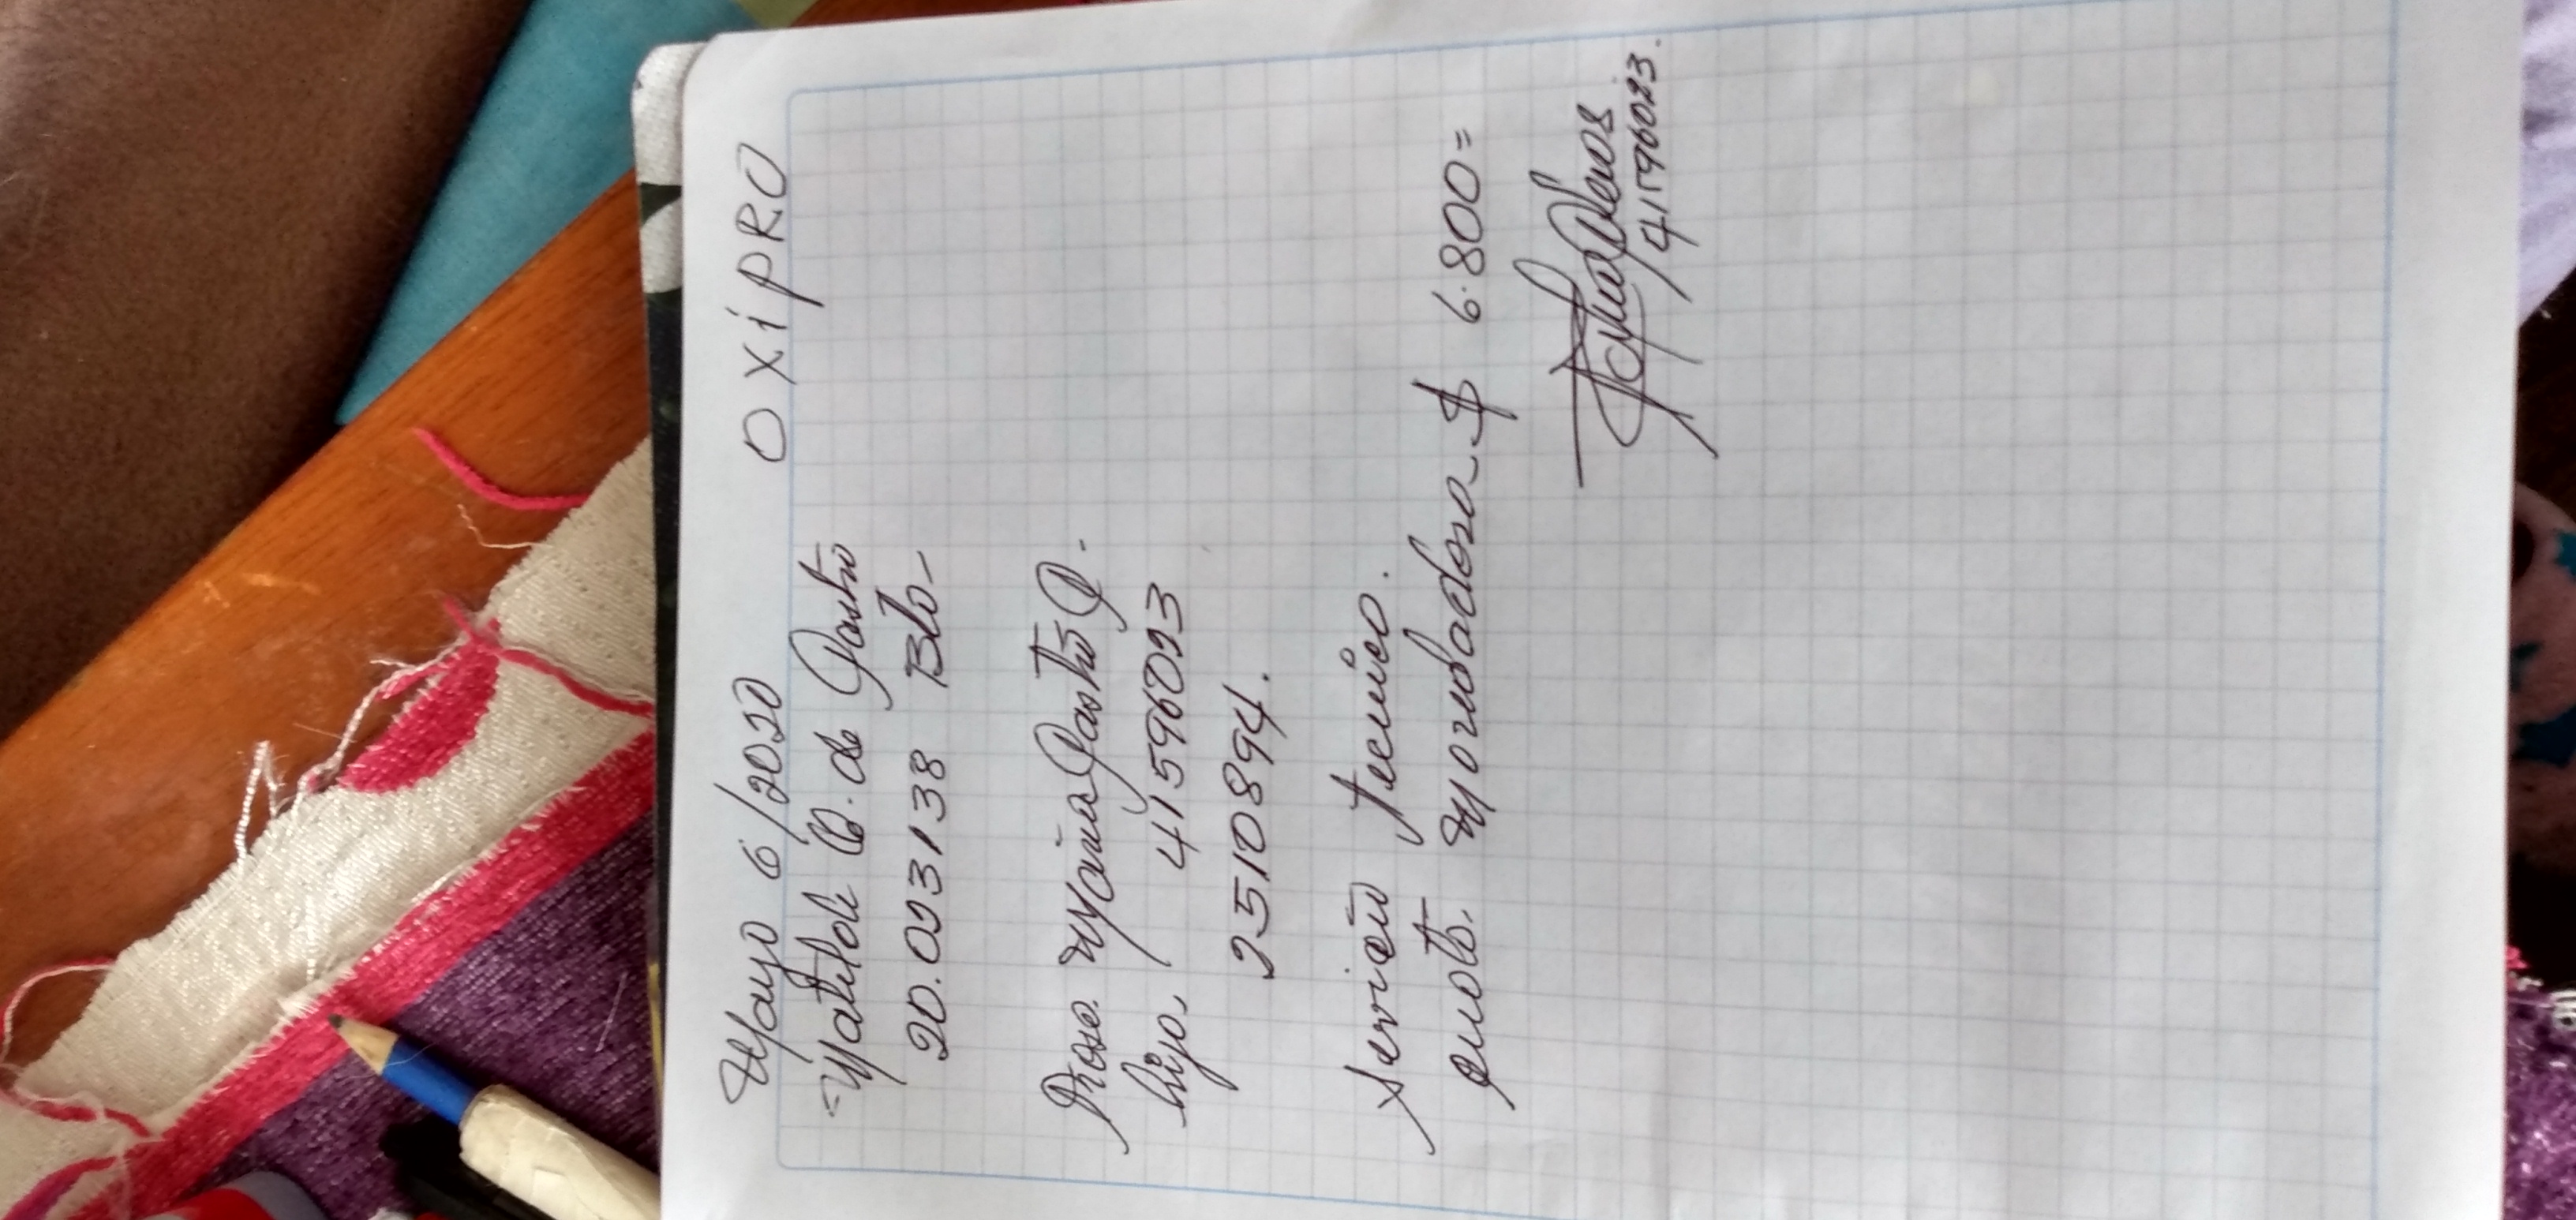 Mayo 6/2020 OXIPRO
Matilde C. de Castro
20.023138 Bta-
Rosa Maria Castro C.
hija. 41596023
2510894.
Servicio tecnico.
cuota moradora $ 6.800=
41596023.